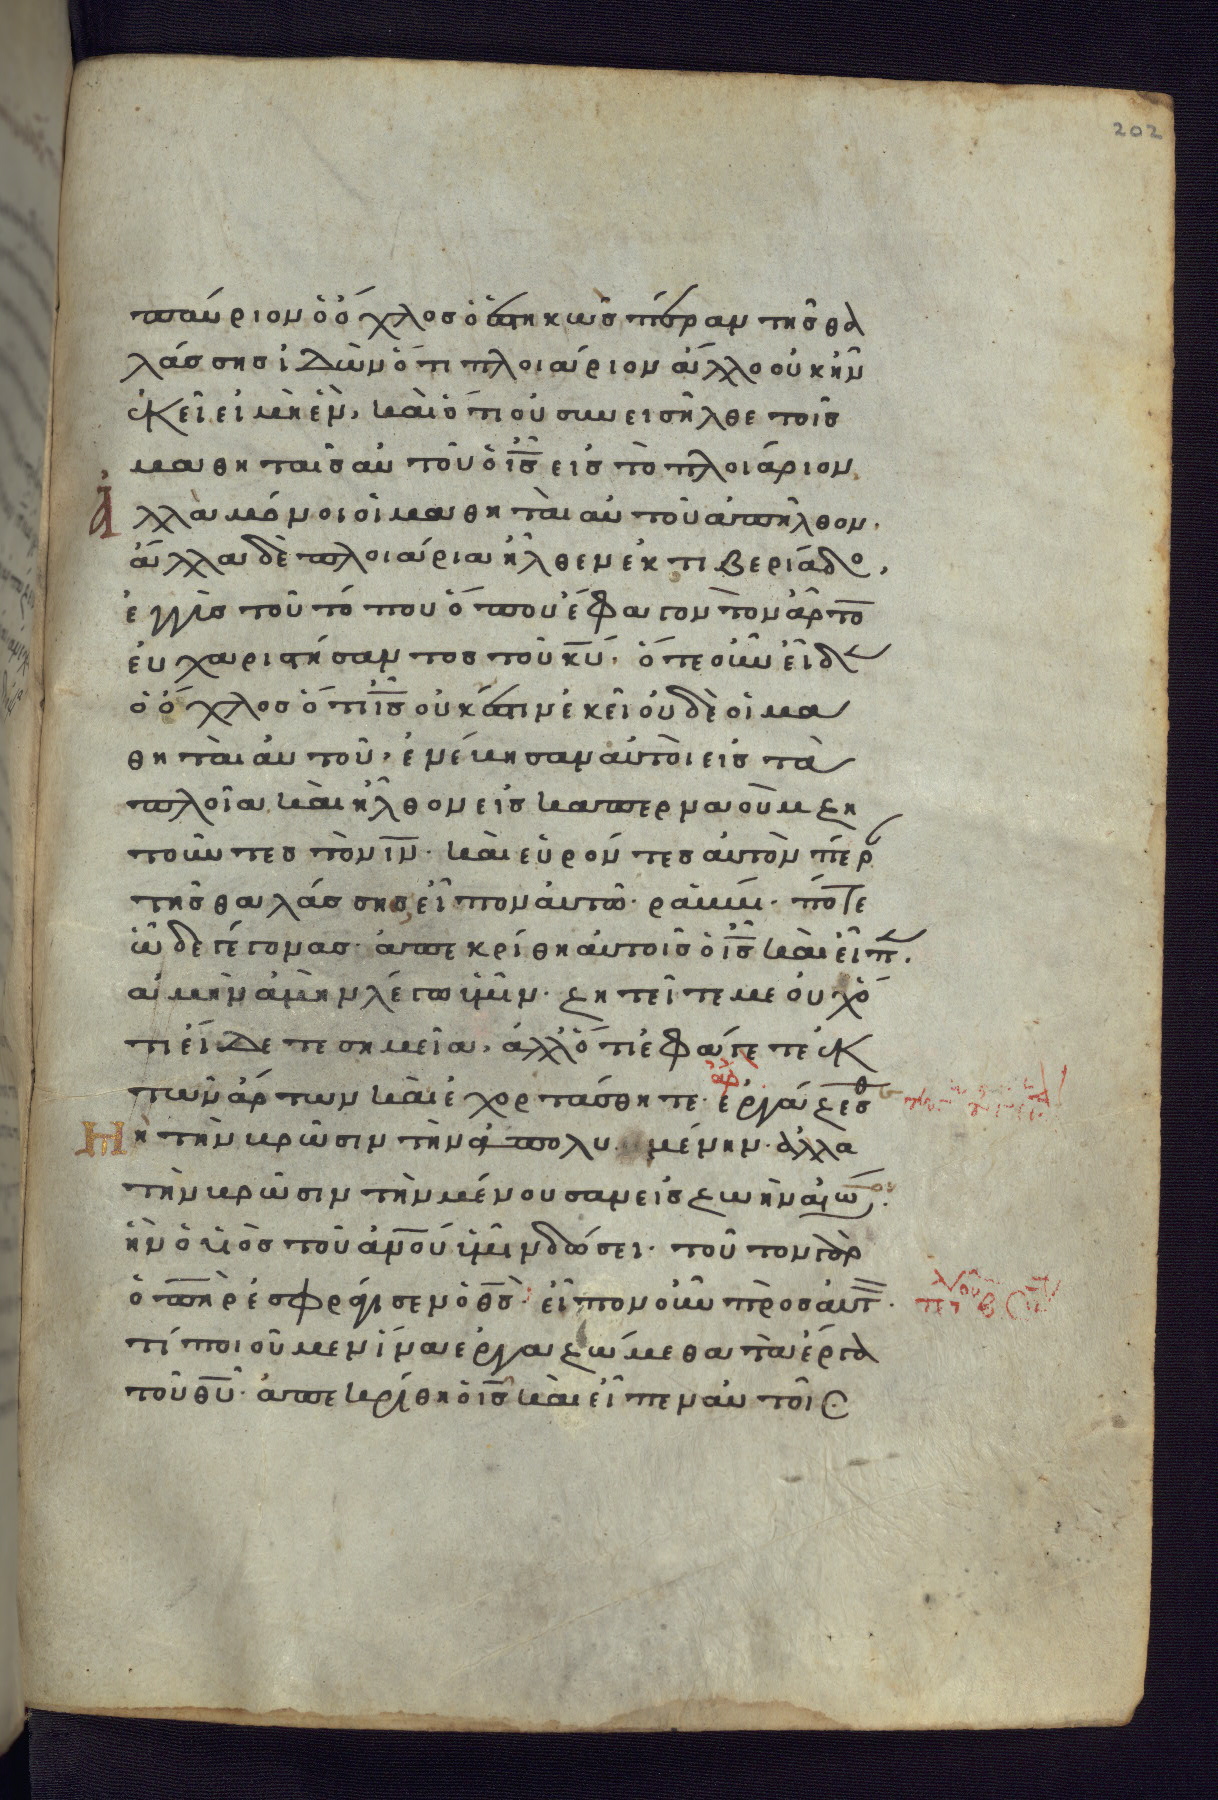 202
παύριον ὁ ὄχλος ὁ ἑστηκὼς πέραν τῆς θα
λάσσης ἰδὼν ὅτι πλοιάριον ἄλλο οὐκ ἦν
ἐκεῖ εἰ μὴ ἓν, καὶ ὅτι οὐ συνεισῆλθε τοῖς
μαθηταῖς αὐτοῦ ὁ ις εἰς τὸ πλοιάριον
ἀλλὰ μόνοι οἱ μαθηταὶ αὐτοῦ ἀπῆλθον,
ἄλλα δὲ πλοιάρια ἦλθεν ἐκ τιβεριάδο,
ἐγγὺς τοῦ τόπου ὅπου ἔφαγον τὸν ἄρτο
εὐχαριστήσαντος τοῦ κυ, ὅτε οὖν εἶδε
ὁ ὄχλος ὅτι ις οὐκ ἔστιν ἐκεῖ οὐδὲ οἱ μα
θηταὶ αὐτοῦ, ἐνέβησαν αὐτοὶ εἰς τὰ
πλοῖα καὶ ἦλθον εἰς καπερναοὺμ ζη
τοῦντες τὸν ιν. καὶ εὑρόντες αὐτὸν πέρ
τῆς θαλάσσης εἶπον αὐτῶ. ῥαββί. πότε
ὧδε γέγονας. ἀπεκρίθη αὐτοῖς ὁ ις καὶ εἶπε.
ἀμὴν ἀμὴν λέγω ὑμῖν. ζητεῖτέ με οὐχ ὅ
τι εἴδετε σημεῖα, ἀλλ' ὅτι ἐφάγετε ἐκ
τῶν ἄρτων καὶ ἐχορτάσθητε. ἐργάζεσθ
μὴ τὴν βρῶσιν τὴν ἀπολυμένην. ἀλλα
τὴν βρῶσιν τὴν μένουσαν εἰς ζωὴν αἰώ.
ἣν ὁ υἱὸς τοῦ ανου ὑμῖν δώσει. τοῦτον γὰρ
ὁ πηρ ἐσφράγισεν ὁ θς. εἶπον οὖν πρὸς αὐτ.
τί ποιοῦμεν ἵνα ἐργαζώμεθα τὰ ἔργα
τοῦ θυ. ἀπεκρίθη ὁ ις καὶ εἶπεν αὐτοῖς.